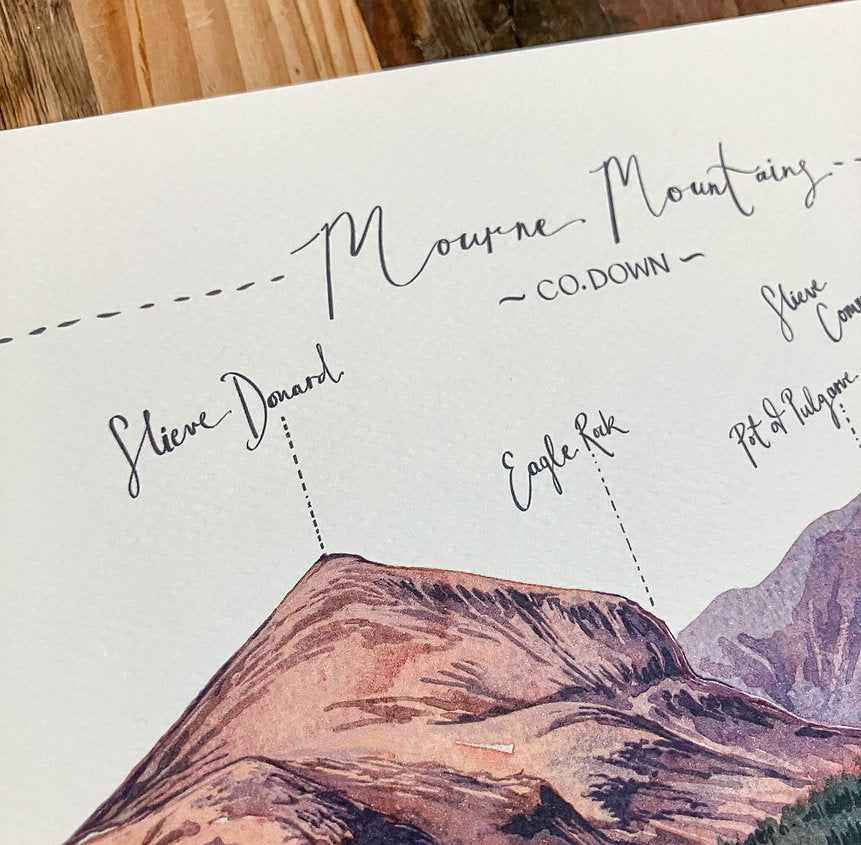 Mourne Mountains
~ CO.DOWN ~
Slieve Donard
Eagle Rock
Slieve
Pot of Pulgarve